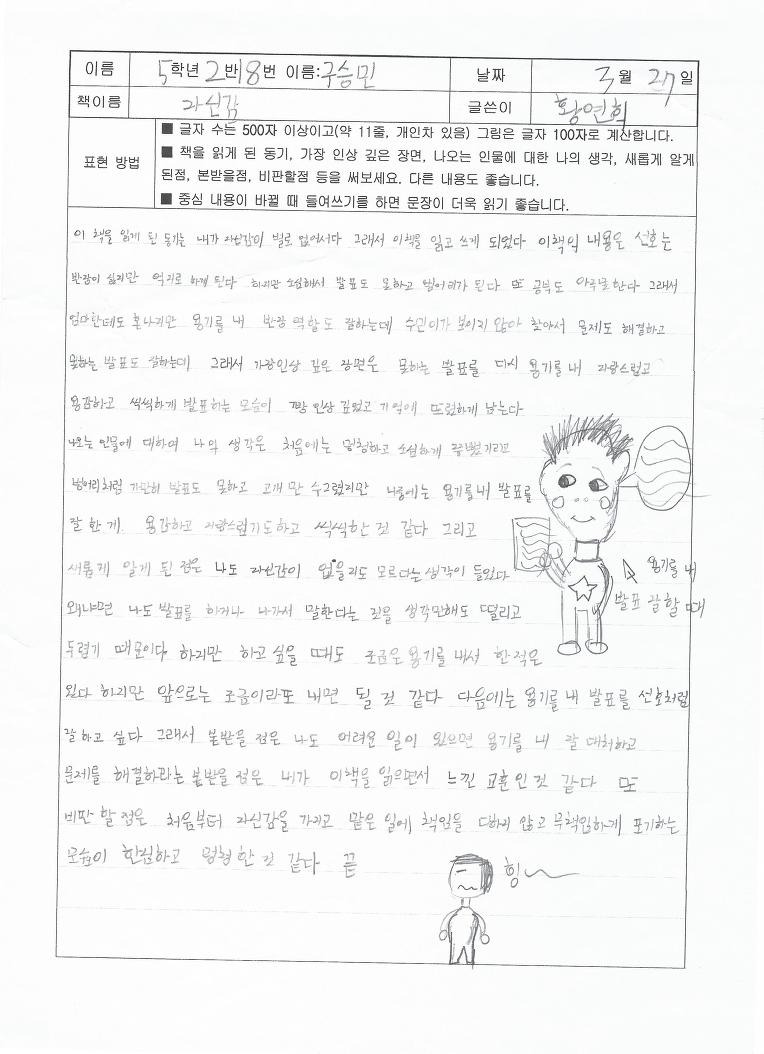 이름 5학년 2반 18번 이름:구승민 날짜 3월 27일
책이름 자신감 글쓴이 황연희
표현 방법
■ 글자 수는 500자 이상이고(약 11줄, 개인차 있음) 그림은 글자 100자로 계산합니다.
■ 책을 읽게 된 동기, 가장 인상 깊은 장면, 나오는 인물에 대한 나의 생각, 새롭게 알게
된점, 본받을점, 비판할점 등을 써보세요. 다른 내용도 좋습니다.
■ 중심 내용이 바뀔 때 들여쓰기를 하면 문장이 더욱 읽기 좋습니다.
이 책을 읽게 된 동기는 내가 자신감이 별로 없어서다 그래서 이책을 읽고 쓰게 되었다 이책의 내용은 선호는
반장이 싫지만 억지로 하게 된다 하지만 소심해서 발표도 못하고 벙어리가 된다 또 공부도 아주못한다 그래서
엄마한테도 혼나지만 용기를 내 반장 역할도 잘하는데 수권이가 보이지 않아 찾아서 문제도 해결하고
못하는 발표도 잘하는데 그래서 가장인상 깊은 장면은 못하는 발표를 다시 용기를 내 자랑스럽고
용감하고 씩씩하게 발표하는 모습이 가장 인상 깊었고 기억에 뚜렷하게 남는다
나오는 인물에 대하여 나의 생각은 처음에는 멍청하고 소심하게
벙어리처럼 가만히 발표도 못하고 고개만 수그렸지만 나중에는 용기를 내 발표를
잘 한게 용감하고 자랑스럽기도하고 씩씩한것 같다 그리고
새롭게 알게 된 점은 나도 자신감이 없을지도 모른다는 생각이 들었다
왜냐면 나도 발표를 하거나 나가서 말한다는 것을 생각만해도 떨리고
두렵기 때문이다 하지만 하고 싶을 때도 조금은 용기를 내서 한적은
있다 하지만 앞으로는 조금이라도 내면 될 것 같다 다음에는 용기를 내 발표를 선호처럼
잘하고 싶다 그래서 본받을 점은 나도 어려운 일이 있으면 용기를 내 잘 대처하고
문제를 해결하라는 본받을 점은 내가 이책을 읽으면서 느낀 교훈인것 같다 또
비판 할 점은 처음부터 자신감을 가지고 맡은 일에 책임을 다하지 않고 무책임하게 포기하는
모습이 한심하고 멍청한 것 같다 끝
용기를 내
발표 잘할 때
힝~